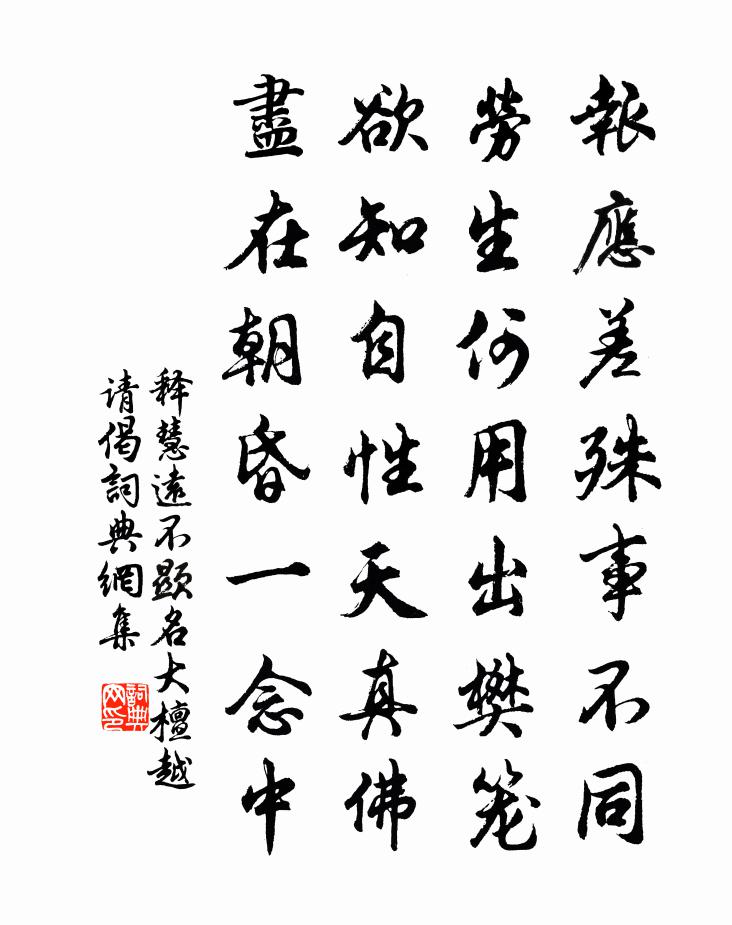 報應差殊事不同
勞生何用出樊笼
欲知自性天真佛
盡在朝昏一念中
释慧遠不顯名大檀越
请偈詞典網集
詞典网印